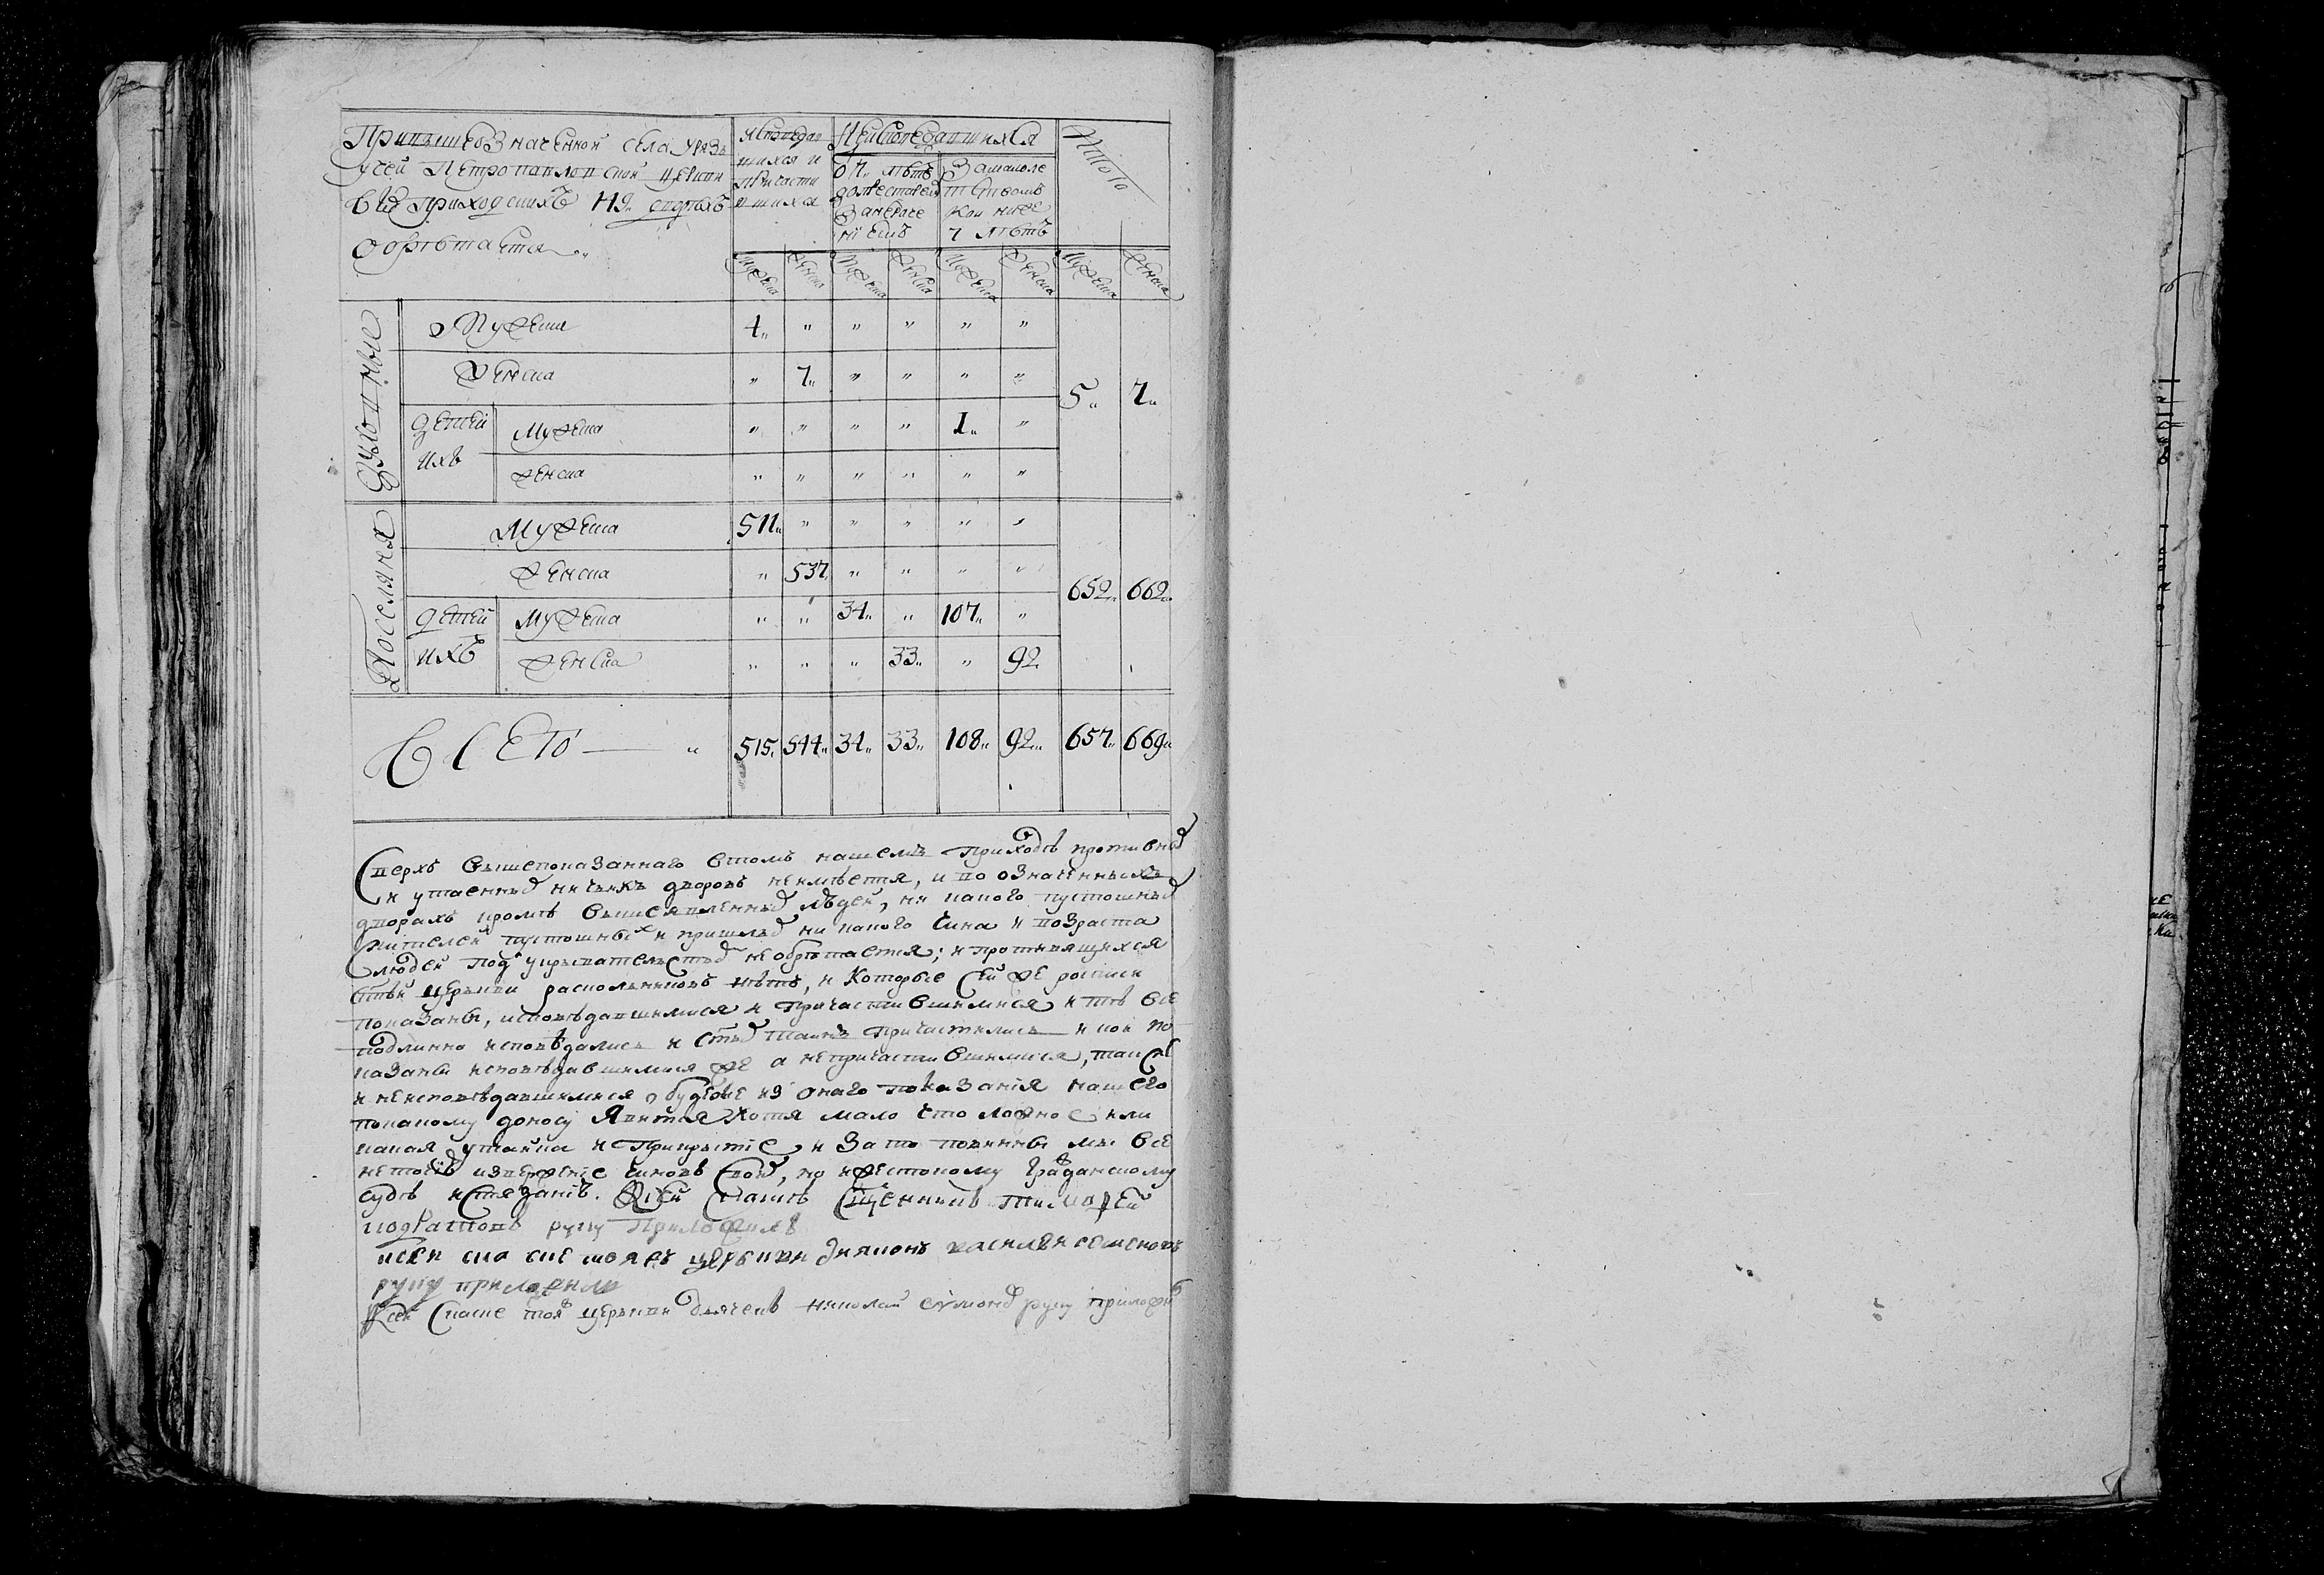 При вышеозначенной села Уряз
усей Петропавловской церкви
въ приходскихъ 119 дворѣхъ
обрѣтается
исповедав
шихся и
причасти
вшихся
Неисповедавшихся
от 7 летъ
до
за
ниемъ
За малоле
тствомъ
кои ниже
7 летъ
Итого
мужеска женска мужеска женска мужеска женска мужеска женска
Духовные
мужеска 4 " " " " "
женска " 7 " " " "
5 7
детей ихъ
мужеска " " " " 1 "
женска " " " " " "
Поселяня
мужеска 511 " " " " "
женска " 537 " " " "
652 662
детей ихъ
мужеска " " 34 " 107 "
женска " " " 33 " 92
Всего 515 544 34 33 108 92 657 669
Сверхъ вышепоказаннаго втомъ нашемъ приходѣ противныхъ
и утаенныхъ ничьихъ дворовъ неимѣется, и во означенныхъ
дворахъ кромѣ вышеявленныхъ людей, ни какого пустошныхъ
жителей пустошныхъ и пришлыхъ ни какого чина и возраста
людей под укрывательствомъ необрѣтается; и противящихся
стѣй церкви раскольниковъ нѣтъ, и которые сей же росписи
показаны, исповѣдавшимися и причастившимися и тѣ все
подлинно исповѣдались и стыхъ таинъ причастились и кои по
казаны исповѣдавшимися же а непричастившимися, такъ же
и неисповѣдавшимися, а буде же из онаго показанія нашего
по какому доносу явится хотя мало что ложно е или
какая утайка и прикрытіе и за то повинны мы все
не токмо изверженіе чиновъ своихъ, но и жестокому гражданскому
судѣ истязанію. К сей скаскѣ Священникъ Тимофей
руку приложилъ
к сей ска ске тояжъ церкви диаконъ василеи семеновъ
руку приложилъ
К сей скаске тояж церкви дьячекъ николай руку приложил